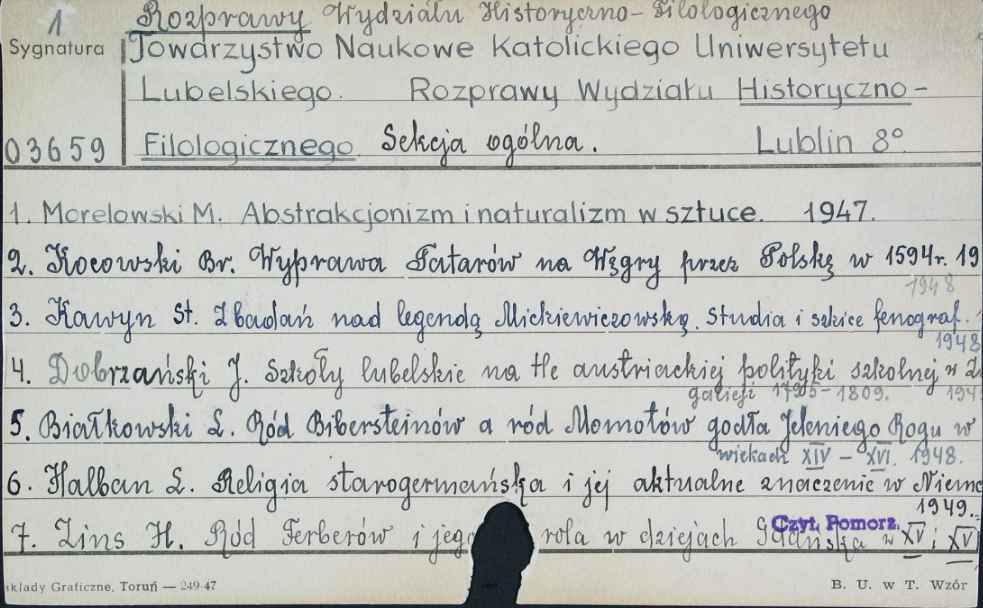 1 Rozprawy Wydziału Historyczno-Filologicznego
Sygnatura Towarzystwo Naukowe Katolickiego Uniwersytetu
Lubelskiego. Rozprawy Wydziału Historyczno-
03659 Filologicznego Sekcja ogólna. Lublin 8°
1. Morelowski M. Abstrakcjonizm i naturalizm w sztuce. 1947.
2. Kocowski Br. Wyprawa Tatarów na Węgry przez Polskę w 1594r. 19
1948
3. Kawyn St. Z badań nad legendą Mickiewiczowską. Studia i szkice fenograf.
1948
4. Dobrzański J. Szkoły lubelskie na tle austriackiej polityki szkolnej w
galicji 1795-1809. 194
5. Białkowski L. Ród Bibersteinów a ród Momotów godła Jeleniego Rogu w
wiekach XIV - XVI. 1948.
6. Halban L. Religia starogermańska i jej aktualne znaczenie w Niemc
1949.
7. Zins H. Ród Ferberów i jego rola w dziejach Gdańska w XV i XV
Czyt. Pomorz.
kłady Graficzne, Toruń — 249-47 B. U. w T. Wzór